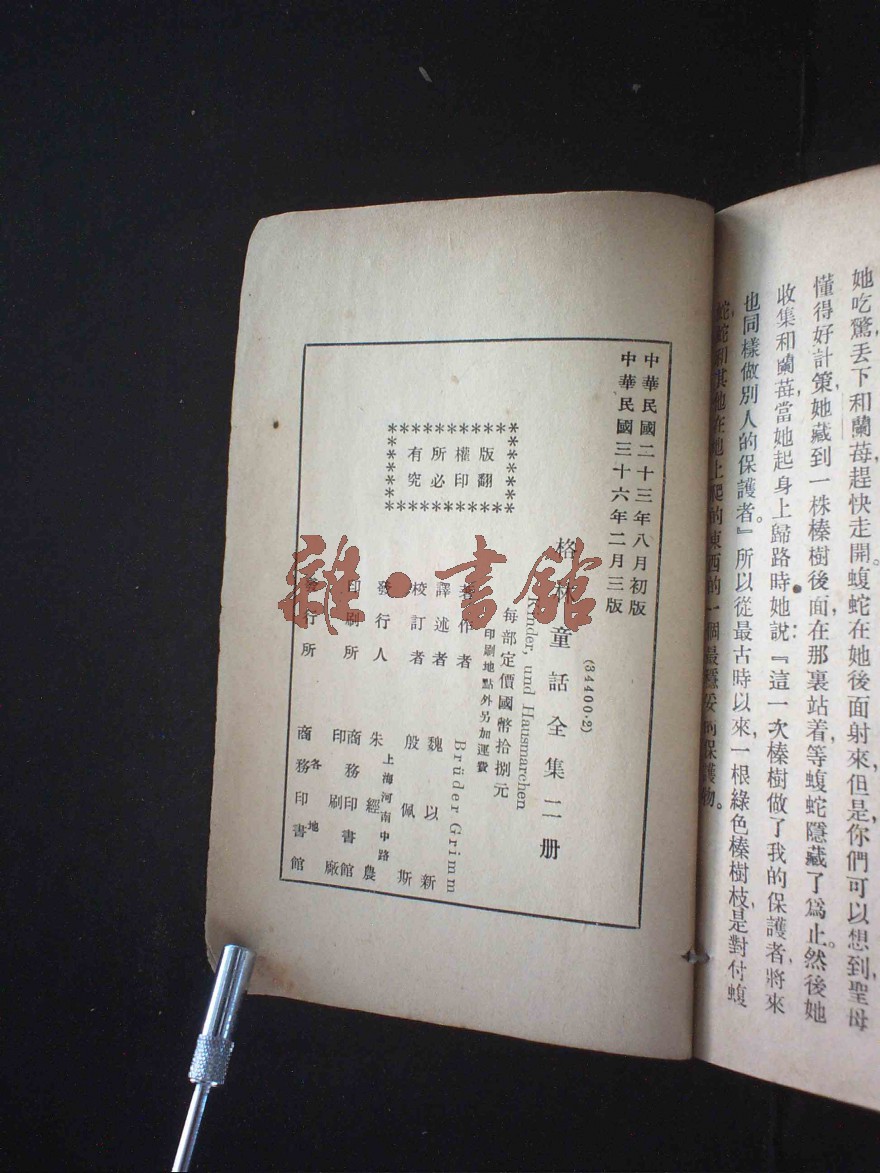 她吃驚丟下和蘭莓，趕快走開。蝮蛇在她後面射來，但是，你們可以想到，聖母
懂得好計策，她藏到一株榛樹後面，在那裏站着，等蝮蛇隱藏了爲止。然後她
收集和蘭莓，當她起身上歸路時，她說：『這一次榛樹做了我的保護者，將來
也同樣做別人的保護者。』所以從最古時以來，一根綠色榛樹枝，是對付蝮
蛇和其他在地上爬的東西的一個最
保護物。
中華民國二十三年八月初版
中華民國三十六年二月三版
(34400·2)
格林童話全集二册
Kinder, und Hausmarchen
每部定價國幣拾捌元
印刷地點外另加運費
版權所有
翻印必究
著作者 Brüder Grimm
譯述者 魏以新
校訂者 殷佩斯
上海河南中路
發行人 朱經農
印刷所 商務印書館
印刷廠
各地
發行所 商務印書館
雜·書館